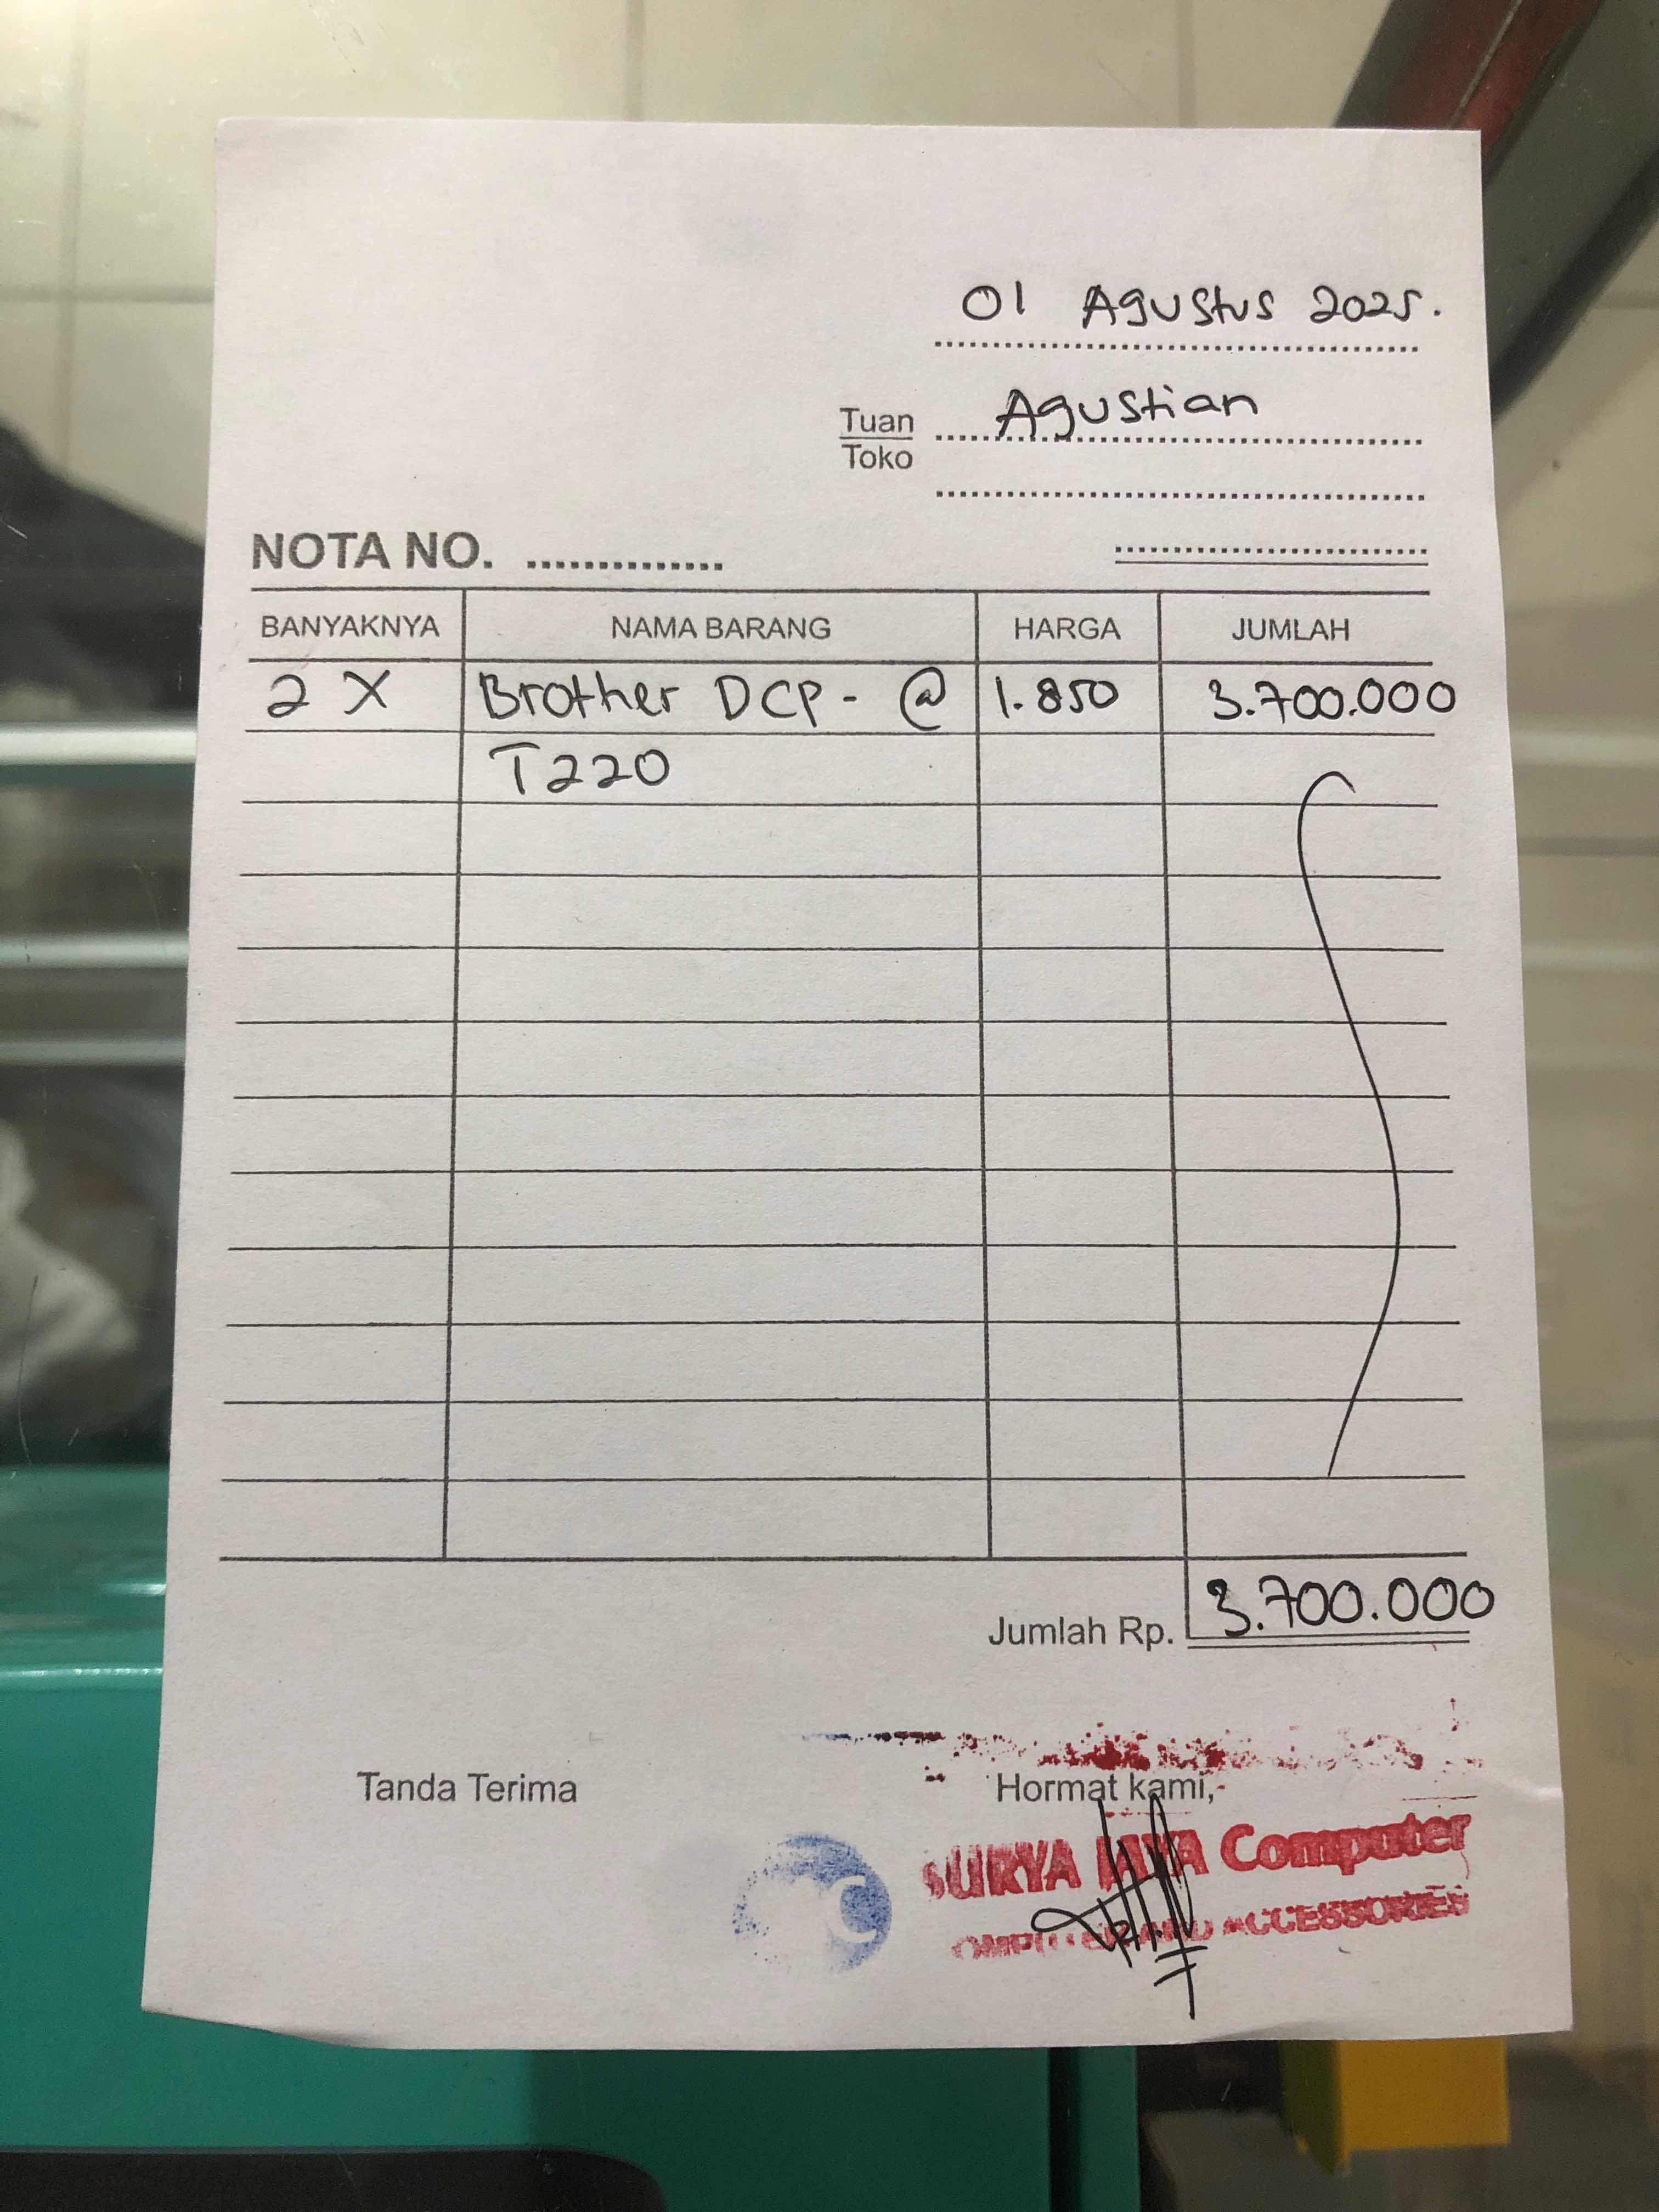 01 Agustus 2025.
Tuan Agustian
Toko
NOTA NO. ..............
BANYAKNYA NAMA BARANG HARGA JUMLAH
2 X Brother DCP - @ 1.850 3.700.000
T220
Jumlah Rp. 3.700.000
Tanda Terima Hormat kami,
SURYA JAYA Computer
COMPUTER AND ACCESSORIES